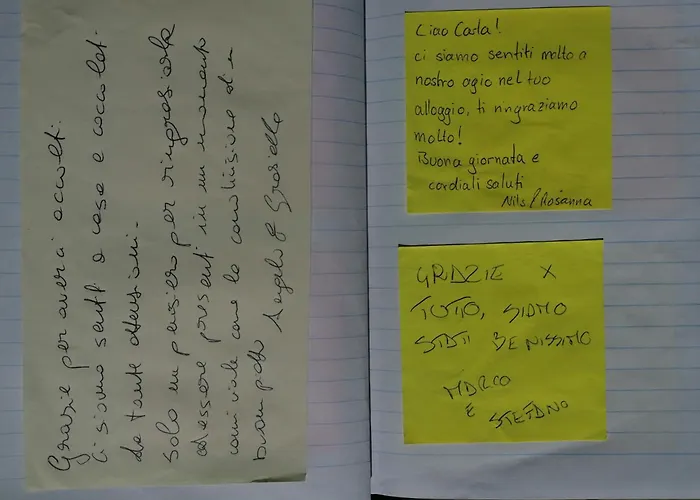 Grazie per averci accolti.
Ci siamo sentiti a casa e coccolati
da tante attenzioni.
Solo un pensiero per ringraziarla
ed essere presenti in un momento
conviviale come la condivisione di un
buon pasto Angelo & Graziella
Ciao Carla!
ci siamo sentiti molto a
nostro agio nel tuo
alloggio, ti ringraziamo
molto!
Buona giornata e
cordiali saluti
Nils / Rosanna
GRAZIE X
TUTTO, SIAMO
STATI BENISSIMO
MARCO
E
STEFANO